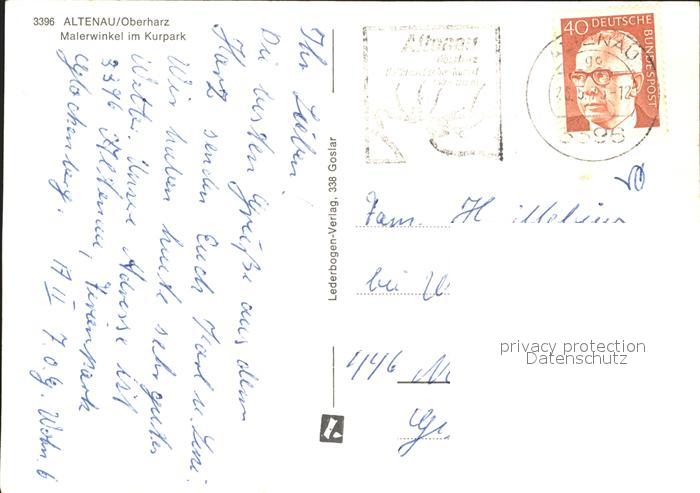 3396 ALTENAU/Oberharz
Malerwinkel im Kurpark
Ihr Lieben!
Die besten Grüße aus dem
Harz senden Euch Karl u. Leni.
Wir haben heute sehr gutes
Wetter. Unsere Adresse ist
3396 Altenau, Ferienpark
Glockenberg. 17 II 7. O.G. Wohn. 6
Lederbogen-Verlag, 338 Goslar
Altenau
Oberharz
40 DEUTSCHE BUNDESPOST
ALTENAU
3396
Fam. H
bei W
446
privacy protection
Datenschutz